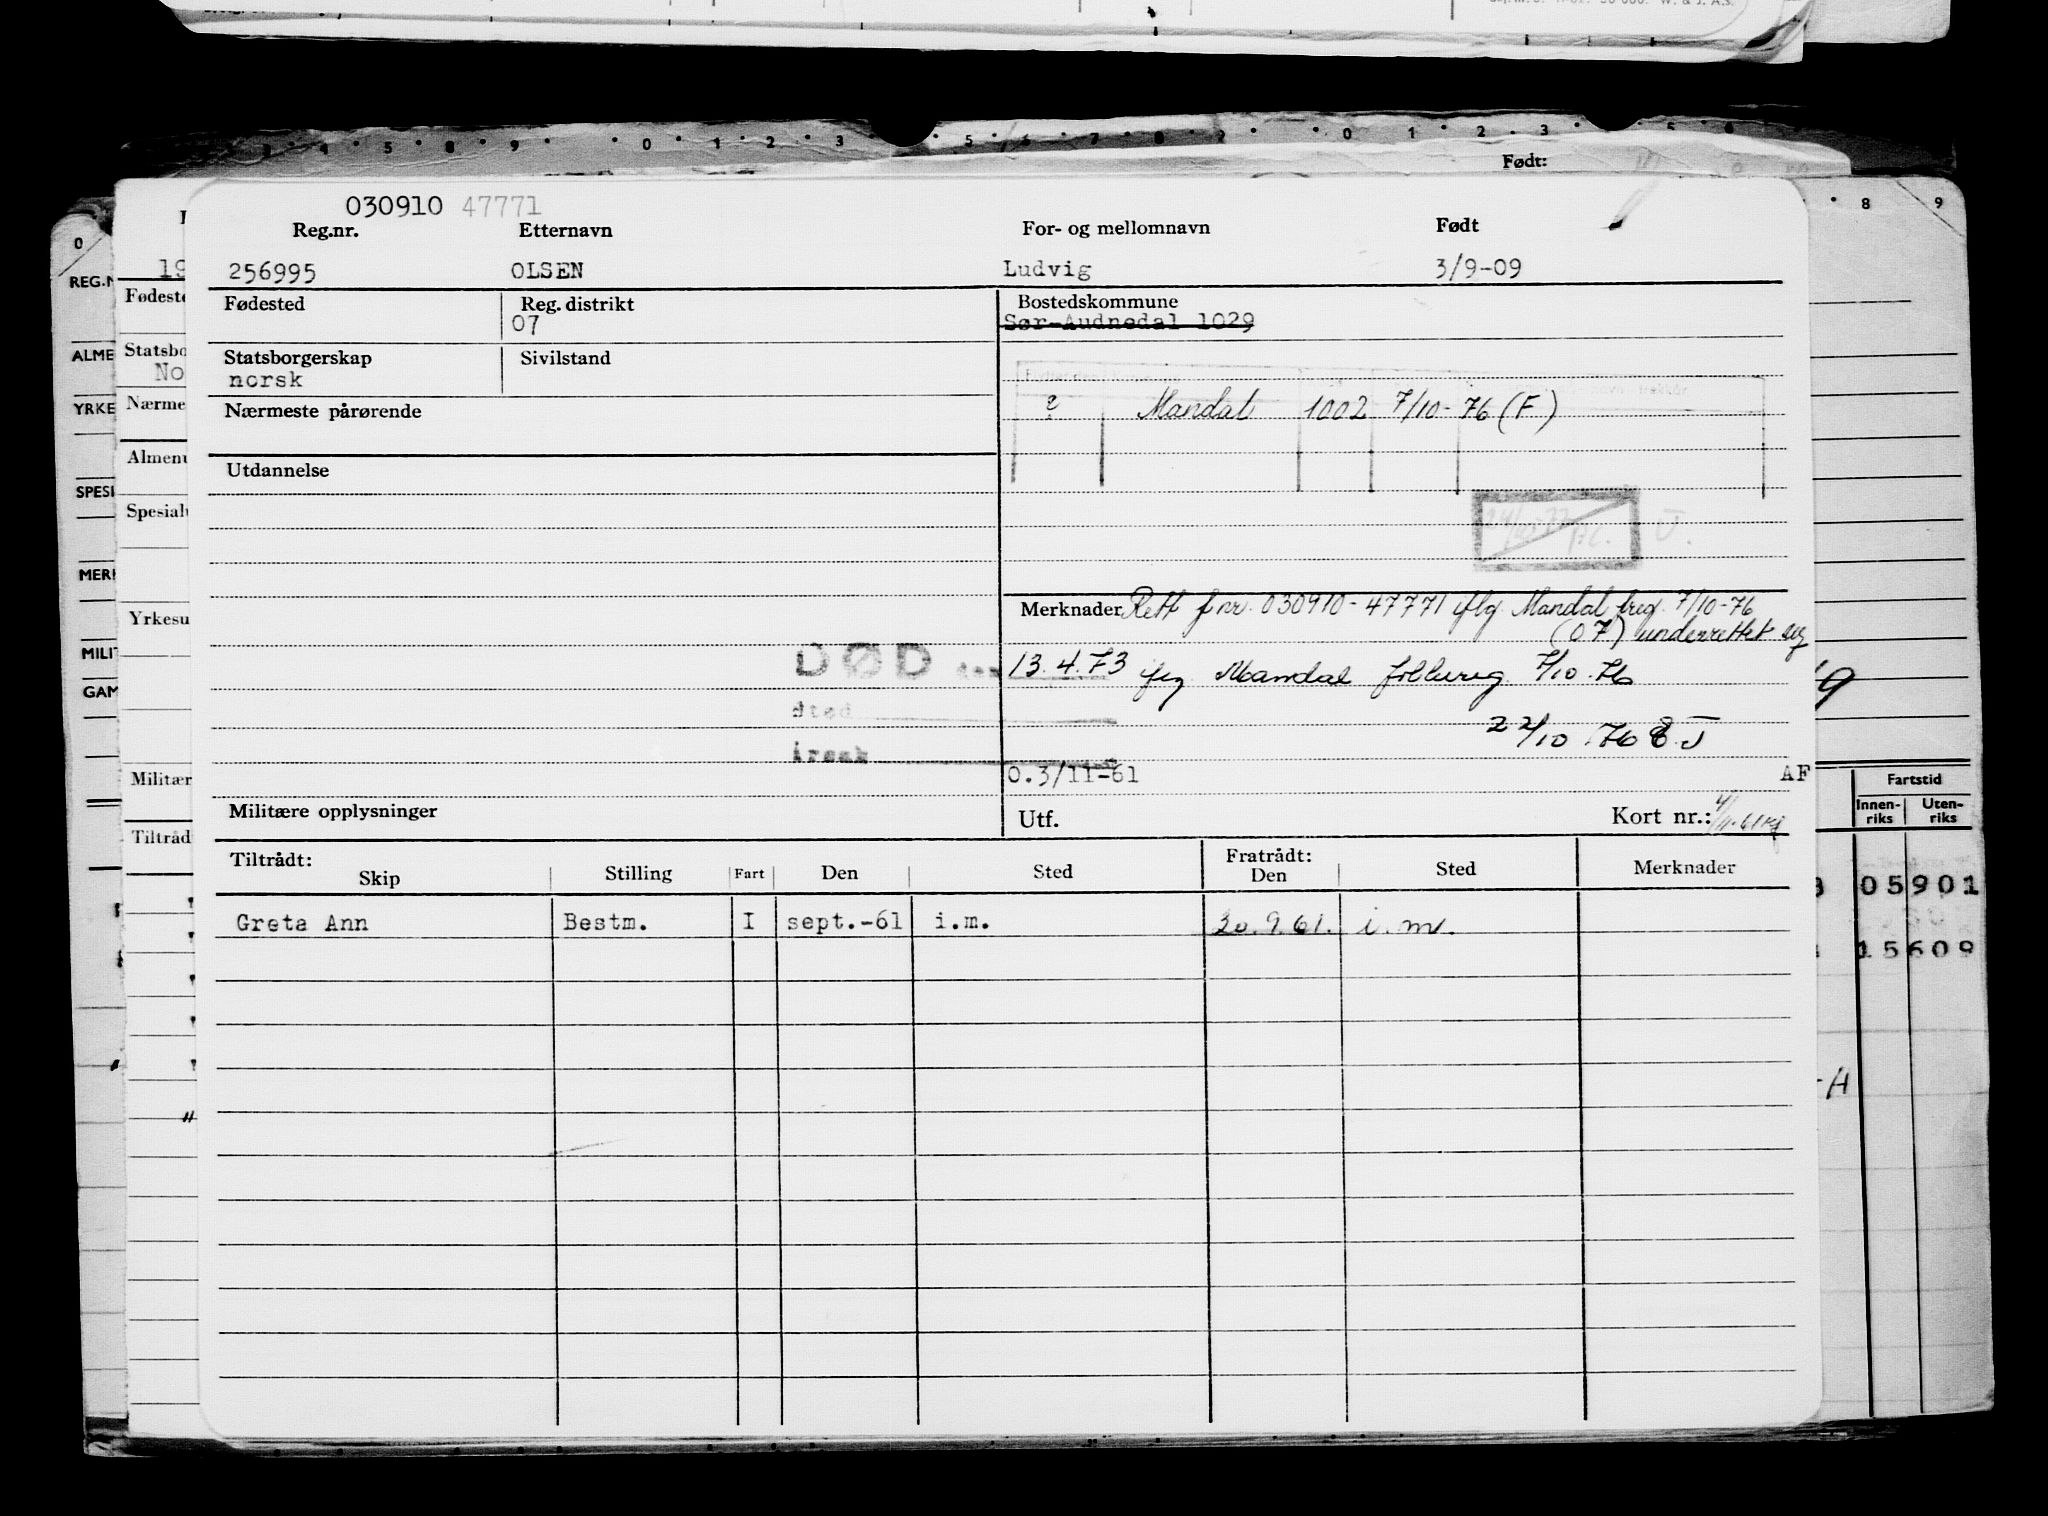 Født:
030910 47771
Reg.nr. Etternavn For- og mellomnavn Født
256995 OLSEN Ludvig 3/9-09
Fødested Reg. distrikt Bostedskommune
07 Sør-Audnedal 1029
Statsborgerskap Sivilstand
norsk
? Mandal 1002 7/10-76 (F)
Nærmeste pårørende
Utdannelse
Merknader Rett fnr. 030910-47771 iflg. Mandal freg. 7/10-76
(07) underrettet
DØD den 13.4.73 Mandal 7/10-76
sted
22/10.76
årsak
0.3/11-61 AF
Militære opplysninger Utf. Kort nr.:
Tiltrådt: Fratrådt:
Skip Stilling Fart Den Sted Den Sted Merknader
Greta Ann Bestm. I sept.-61 i.m. 30.9.61. i.m.
REG.N
ALME
YRKE
SPESI
MERK
MILIT
GAM
19
Fødeste
Statsbo
No
Nærme
Almenu
Spesialu
Yrkesu
Militær
Tiltråd
Fartstid
Innen-riks Uten-riks
05901
15609
-H